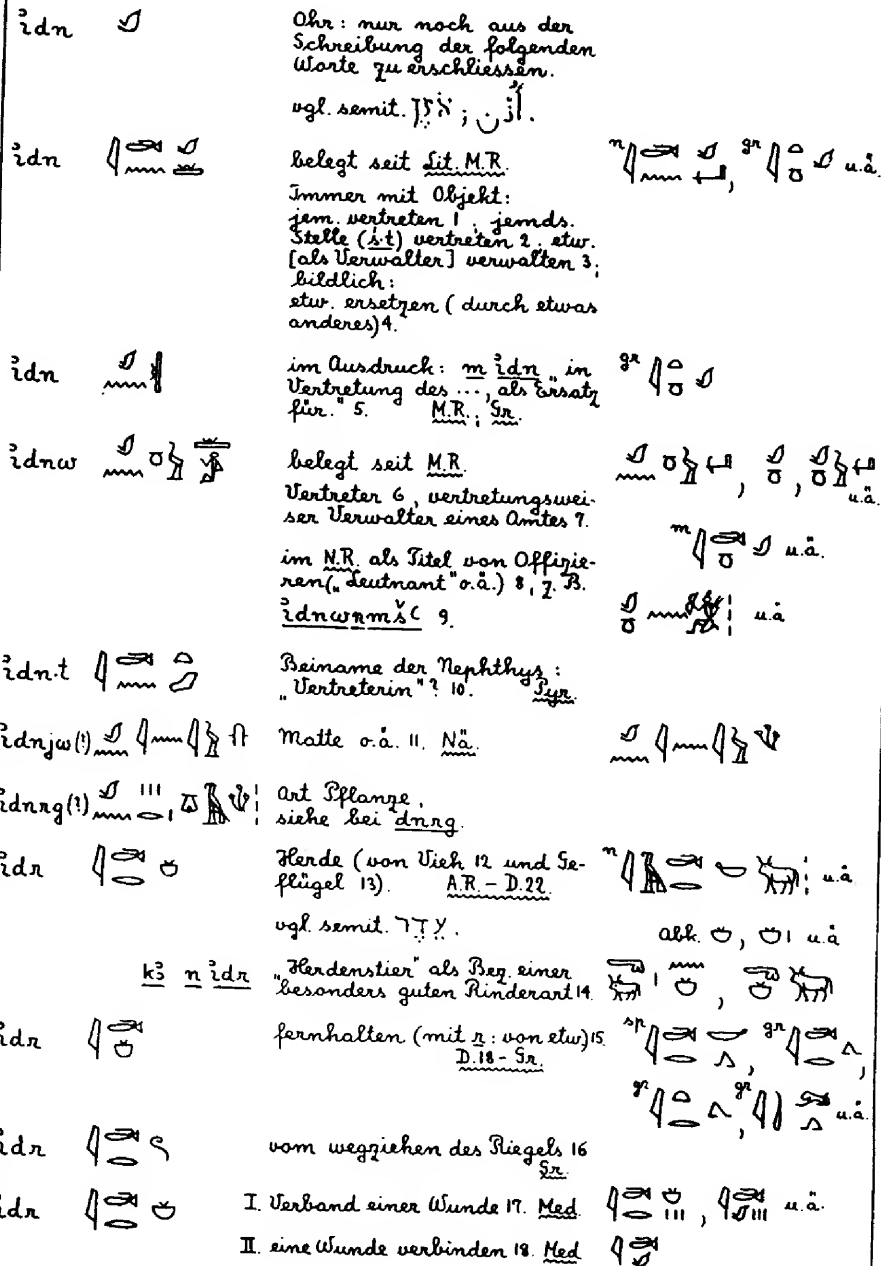 ꞽdn 𓄔 Ohr: nur noch aus der
Schreibung der folgenden
Worte zu erschliessen.
vgl. semit. אֹזֶן ; أُذُن.
ꞽdn belegt seit Lit. M.R. n , gr u.ä.
Immer mit Objekt:
jem. vertreten 1 ; jemds.
Stelle (ś·t) vertreten 2. etw.
[als Verwalter] verwalten 3;
bildlich:
etw. ersetzen (durch etwas
anderes) 4.
ꞽdn im Ausdruck: m ꞽdn „in gr
Vertretung des ..., als Ersatz
für." 5. M.R.; Gr.
ꞽdnw belegt seit M.R. u.ä.
Vertreter 6, vertretungswei-
ser Verwalter eines Amtes 7. m u.ä.
im N.R. als Titel von Offizie-
ren („Leutnant" o.ä.) 8, z.B.
ꞽdnwnmšꜥ 9. u.ä
ꞽdn·t Beiname der Nephthys:
„Vertreterin"? 10. Pyr.
ꞽdnjw(?) Matte o.ä. 11. Nä.
ꞽdnrg(?) Art Pflanze,
siehe bei dnrg.
ꞽdr Herde (von Vieh 12 und Ge- n u.ä
flügel 13). A.R. – D.22.
vgl. semit. עֵדֶר. abk. u.ä
kꜣ n ꞽdr „Herdenstier" als Bez. einer
besonders guten Rinderart 14.
ꞽdr fernhalten (mit r: von etw) 15. sp , gr ,
D.18 – Gr.
gr , gr u.ä.
ꞽdr vom wegziehen des Riegels 16
Gr.
ꞽdr I. Verband einer Wunde 17. Med. , u.ä.
II. eine Wunde verbinden 18. Med